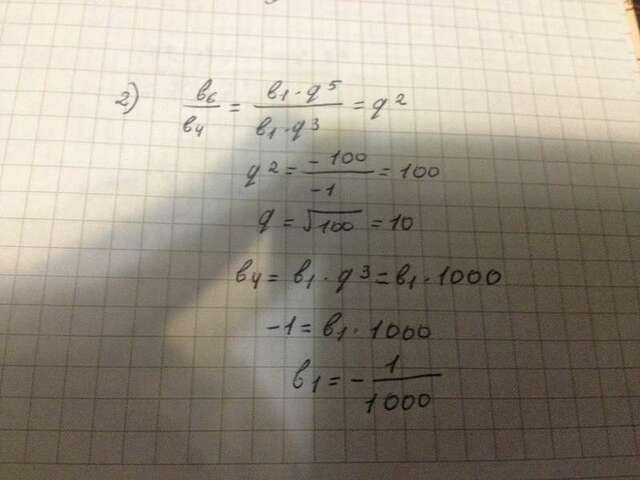 2) b₆/b₄ = b₁·q⁵/b₁·q³ = q²
q² = -100/-1 = 100
q = √100 = 10
b₄ = b₁·q³ = b₁·1000
-1 = b₁·1000
b₁ = -1/1000